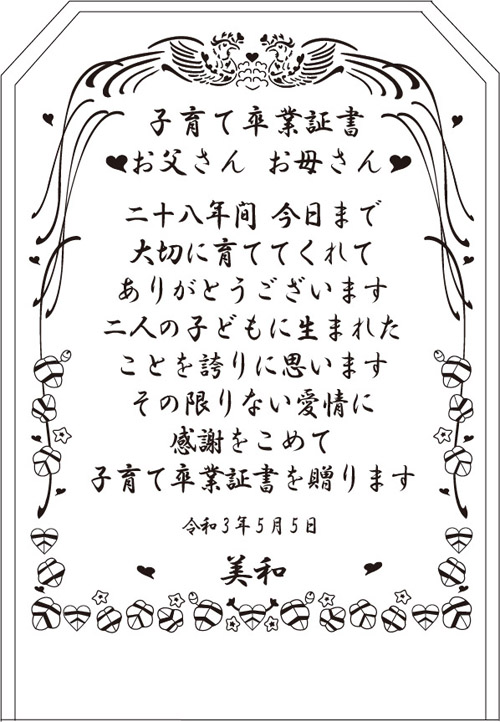 子育て卒業証書
♥お父さん お母さん♥
二十八年间 今日まで
大切に育ててくれて
ありがとうございます
二人の子どもに生まれた
ことを誇りに思います
その限りない愛情に
感謝をこめて
子育て卒業証書を贈ります
令和3年5月5日
美和